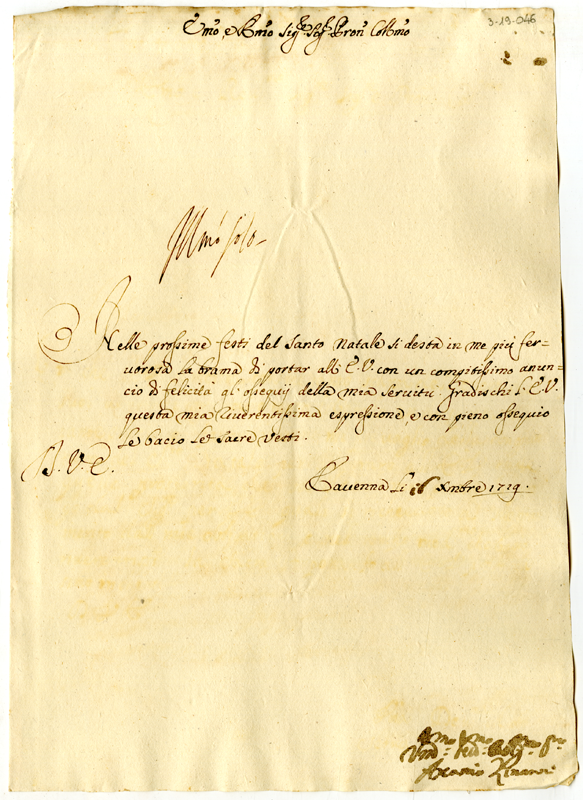 3-19-046
Emo, e Rmo Sig.r Sig.r Pron Colmo
Nelle prossime festi del Santo Natale si desta in me piu fer=
uorosa la brama di portar all E.V. con un compitissimo anun=
cio di felicità gl'ossequij della mia seruitù Gradischi l'E.V.
questa mia riuerentissima espressione, e con pieno ossequio
le bacio le sacre vesti.
B. V. E.
Rauenna li 16 Xmbre 1719.